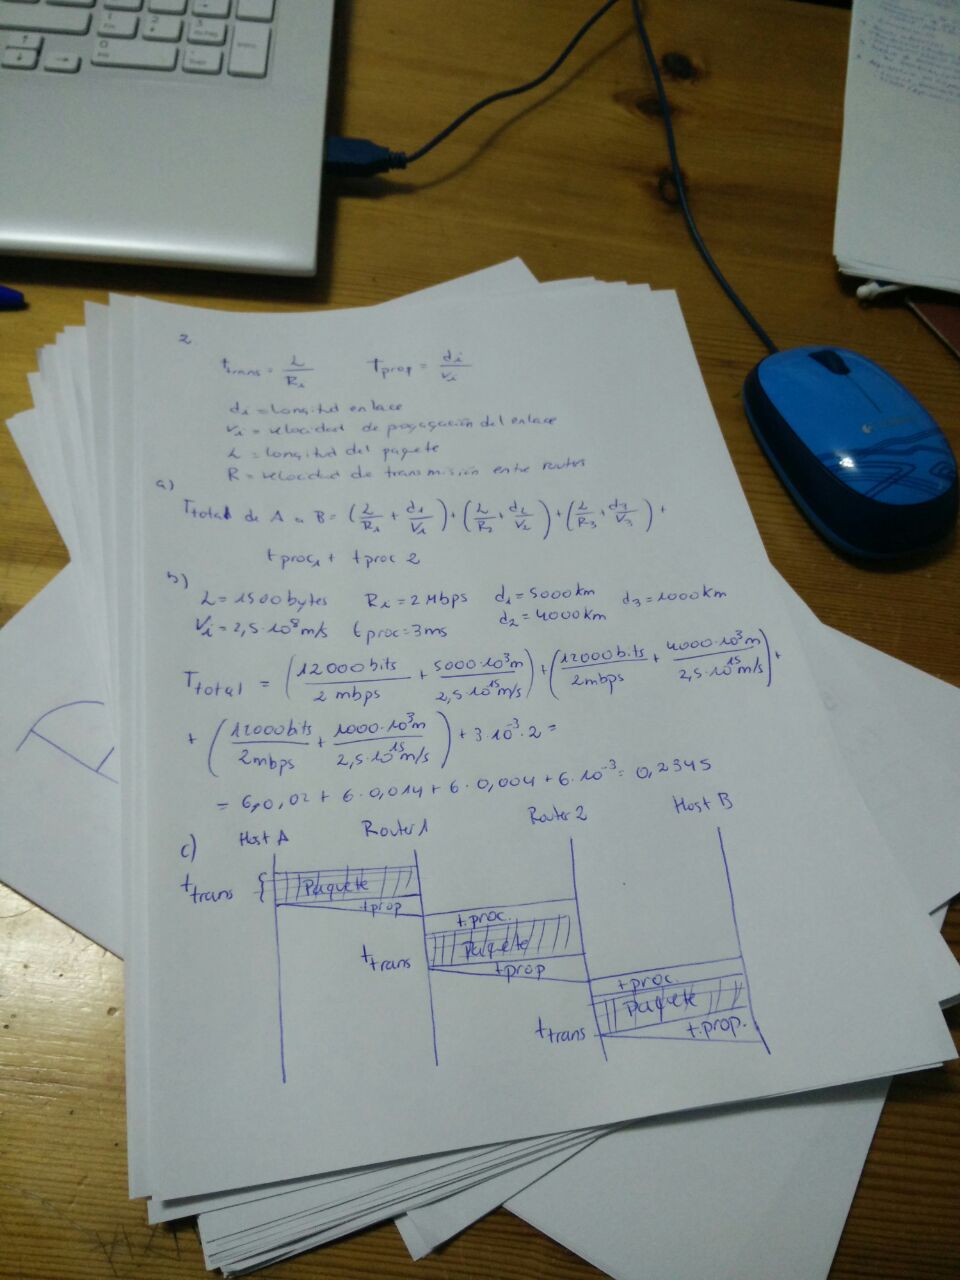 2
t trans = L/R1 t prop = di/Vi
di = longitud enlace
Vi = velocidad de pogagación del enlace
L = longitud del paquete
R = velocidad de transmisión entre routers
a)
T total de A a B = (L/R1 + d1/V1) + (L/R2 + d2/V2) + (L/R3 + d3/V3) +
t proc1 + t proc 2
b)
L = 1500 bytes Ri = 2 Mbps d1 = 5000 km d3 = 1000 km
Vi = 2,5·10^8 m/s t proc = 3 ms d2 = 4000 km
T total = (12000 bits/2 mbps + 5000·10^3 m/2,5·10^15 m/s) + (12000 bits/2 mbps + 4000·10^3 m/2,5·10^15 m/s) +
+ (12000 bits/2 mbps + 1000·10^3 m/2,5·10^15 m/s) + 3·10^-3·2 =
= 6,0,02 + 6·0,014 + 6·0,004 + 6·10^-3 = 0,2345
c) Host A Router 1 Router 2 Host B
t trans Paquete
t prop
t.proc.
t trans Paquete
t prop
t proc.
Paquete
t trans t.prop.